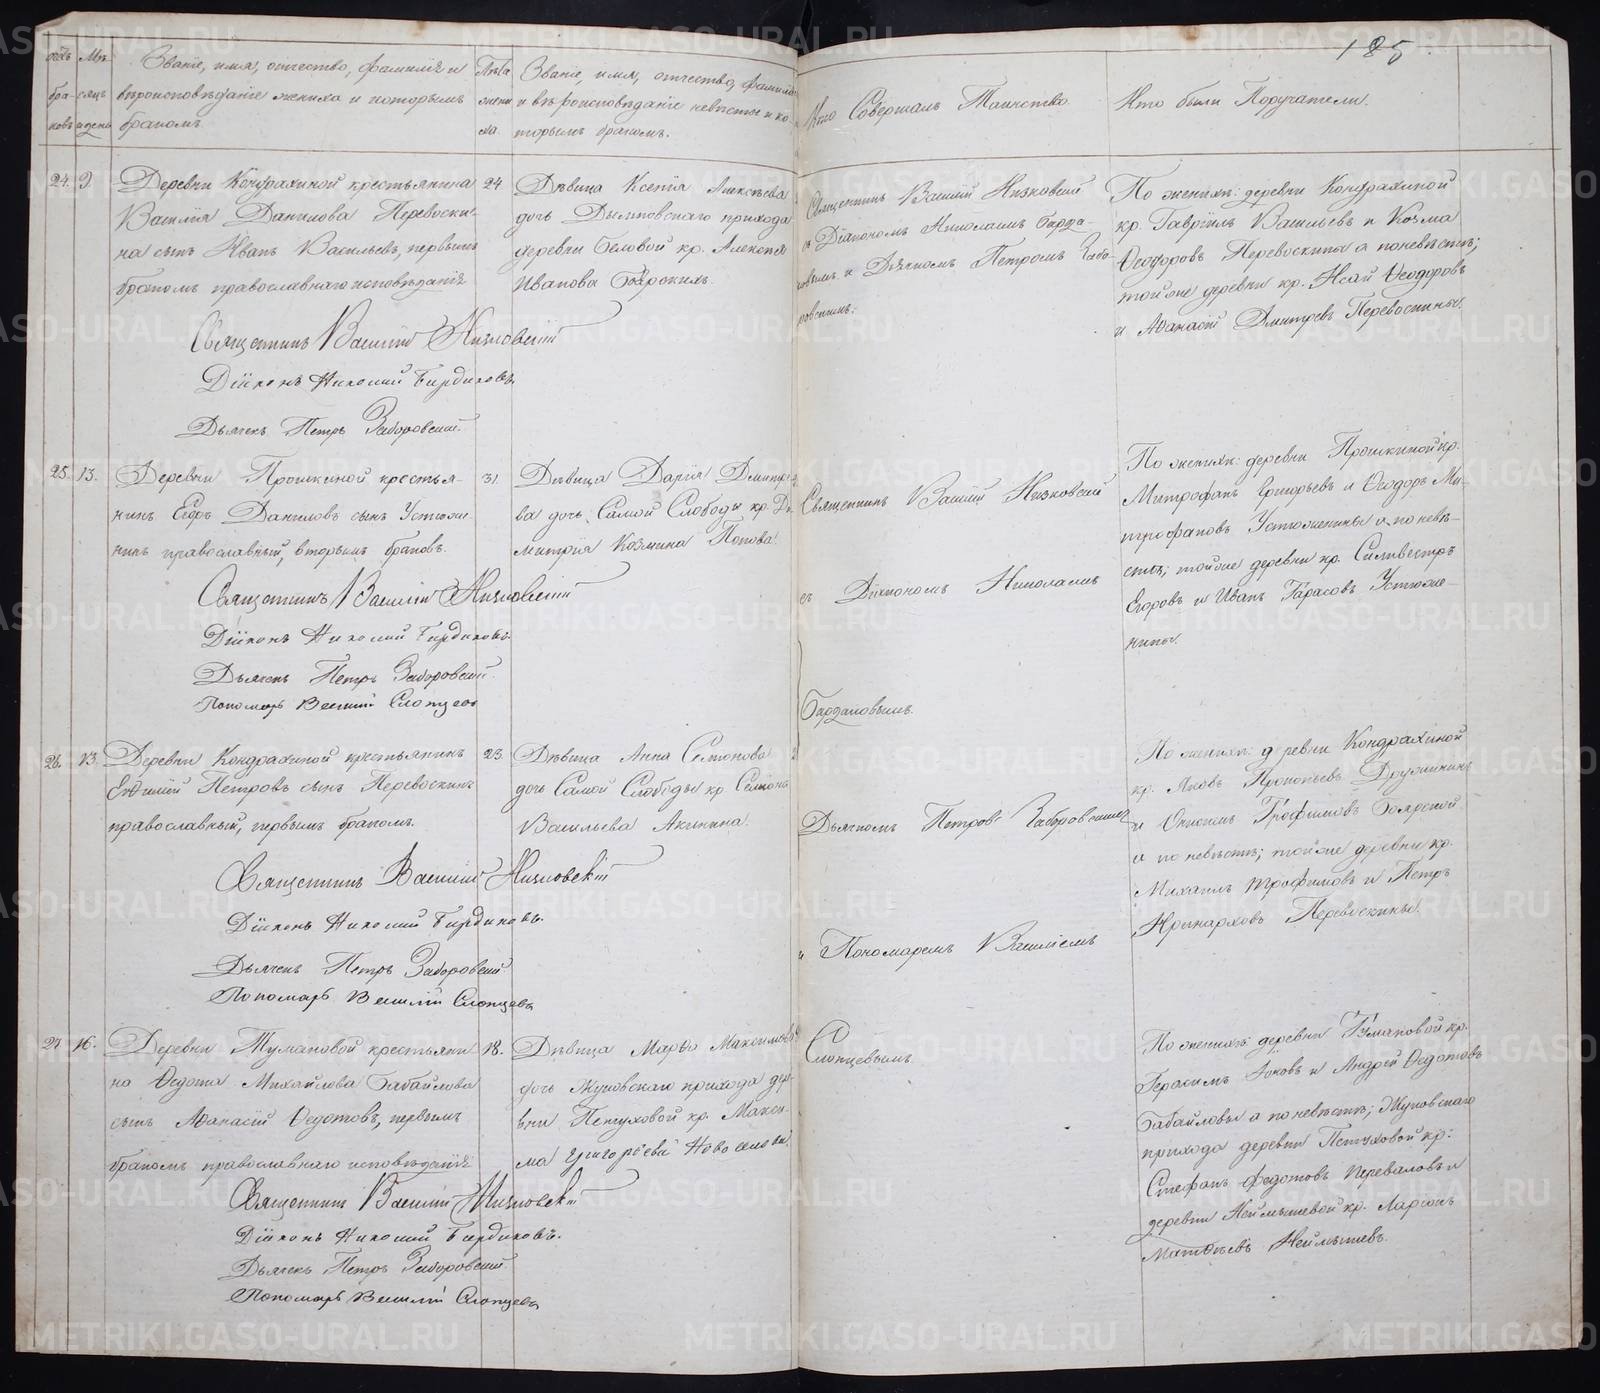 185.
Мѣ-
сяцъ
и день
бра-
ковъ
Званіе, имя, отчество, фамилія и
вѣроисповѣданіе жениха и которымъ
бракомъ
Лѣта
жени
ха.
Званіе, имя, отчество, фамилія
и вѣроисповѣданіе невѣсты и ко-
торымъ бракомъ.
Кто Совершалъ Таинство.
Кто были Поручатели.
24. 9.
Деревни Кондрахиной крестьянина
Василія Данилова Перевоски-
на сынъ Иванъ Васильевъ, первымъ
бракомъ православнаго исповѣданія
24
Дѣвица Ксенія Алексѣева
дочь Дымковскаго прихода
деревни Бѣловой кр. Алексѣя
Иванова
Священникъ Василій Низковскій
Діаконъ Николай Бирдюковъ
Дьячекъ Петръ Заборовскій
Священникъ Василій Низковскій
съ Діакономъ Николаемъ
и Дьячкомъ Петромъ Забо-
ровскимъ.
По женихѣ: деревни Кондрахиной
кр. Гавріилъ Васильевъ и Козма
Ѳеодоровъ Перевоскины а по невѣстѣ;
той же деревни кр. Исай Ѳеодоровъ
и Аѳанасій Дмитревъ Перевоскины.
25. 13.
Деревни Прошкиной крестья-
нинъ Егоръ Даниловъ сынъ Устюжа-
нинъ православный, вторымъ бракомъ.
31.
Дѣвица Дарія Дмитріе-
ва дочь Самой Слободы кр. Ди-
митрія Козмина Попова.
Священникъ Василій Низковскій
Діаконъ Николай Бирдюковъ
Дьячекъ Петръ Заборовскій
Пономарь Василій Слопцевъ
Священникъ Василій Низковскій
съ Діакономъ Николаемъ
По женихѣ: деревни Прошкиной кр.
Митрофанъ Григорьевъ и Ѳеодоръ Ми-
трофановъ Устюженины а по невѣ-
стѣ; той же деревни кр. Силвестръ
Егоровъ и Иванъ Тарасовъ Устюже-
нины.
26. 13.
Деревни Кондрахиной крестьянинъ
Евѳимій Петровъ сынъ Перевоскинъ
православный, первымъ бракомъ.
23.
Дѣвица Анна Семионова
дочь Самой Слободы кр. Семіона
Васильева Акинина.
Священникъ Василій Низковскій
Діаконъ Николай Бирдюковъ.
Дьячекъ Петръ Заборовскій
Пономарь Василій Слопцевъ
Дьячкомъ Петромъ Заборовскимъ
и Пономаремъ Василіемъ
По женихѣ: деревни Кондрахиной
кр. Яковъ Прокопьевъ Дружининъ
и Трофимовъ Боярской
а по невѣстѣ; той же деревни кр.
Михаилъ Трофимовъ и Петръ
Иринарховъ Перевоскины.
27 16.
Деревни Тумановой крестьяни
на Ѳедота Михайлова Бабайлова
сынъ Аѳанасій Ѳедотовъ, первымъ
бракомъ православнаго исповѣданія
18.
Дѣвица Марѳа Максимова
дочь Жуковскаго прихода дер-
вни Пентуховой кр. Макси-
ма Григорьева Новоселова.
Священникъ Василій Низковскій
Діаконъ Николай Бирдюковъ.
Дьячекъ Петръ Заборовскій
Пономарь Василій Слопцевъ
Слопцевымъ
По женихѣ: деревни Тумановой кр.
Герасимъ Яковъ и Андрей Ѳедотовъ
Бабайловы а по невѣстѣ; Жуковскаго
прихода деревни Пентуховой кр:
Стефанъ Федотовъ Переваловъ и
деревни Неймышевой кр. Ларіонъ
Матвѣевъ Неймышевъ.